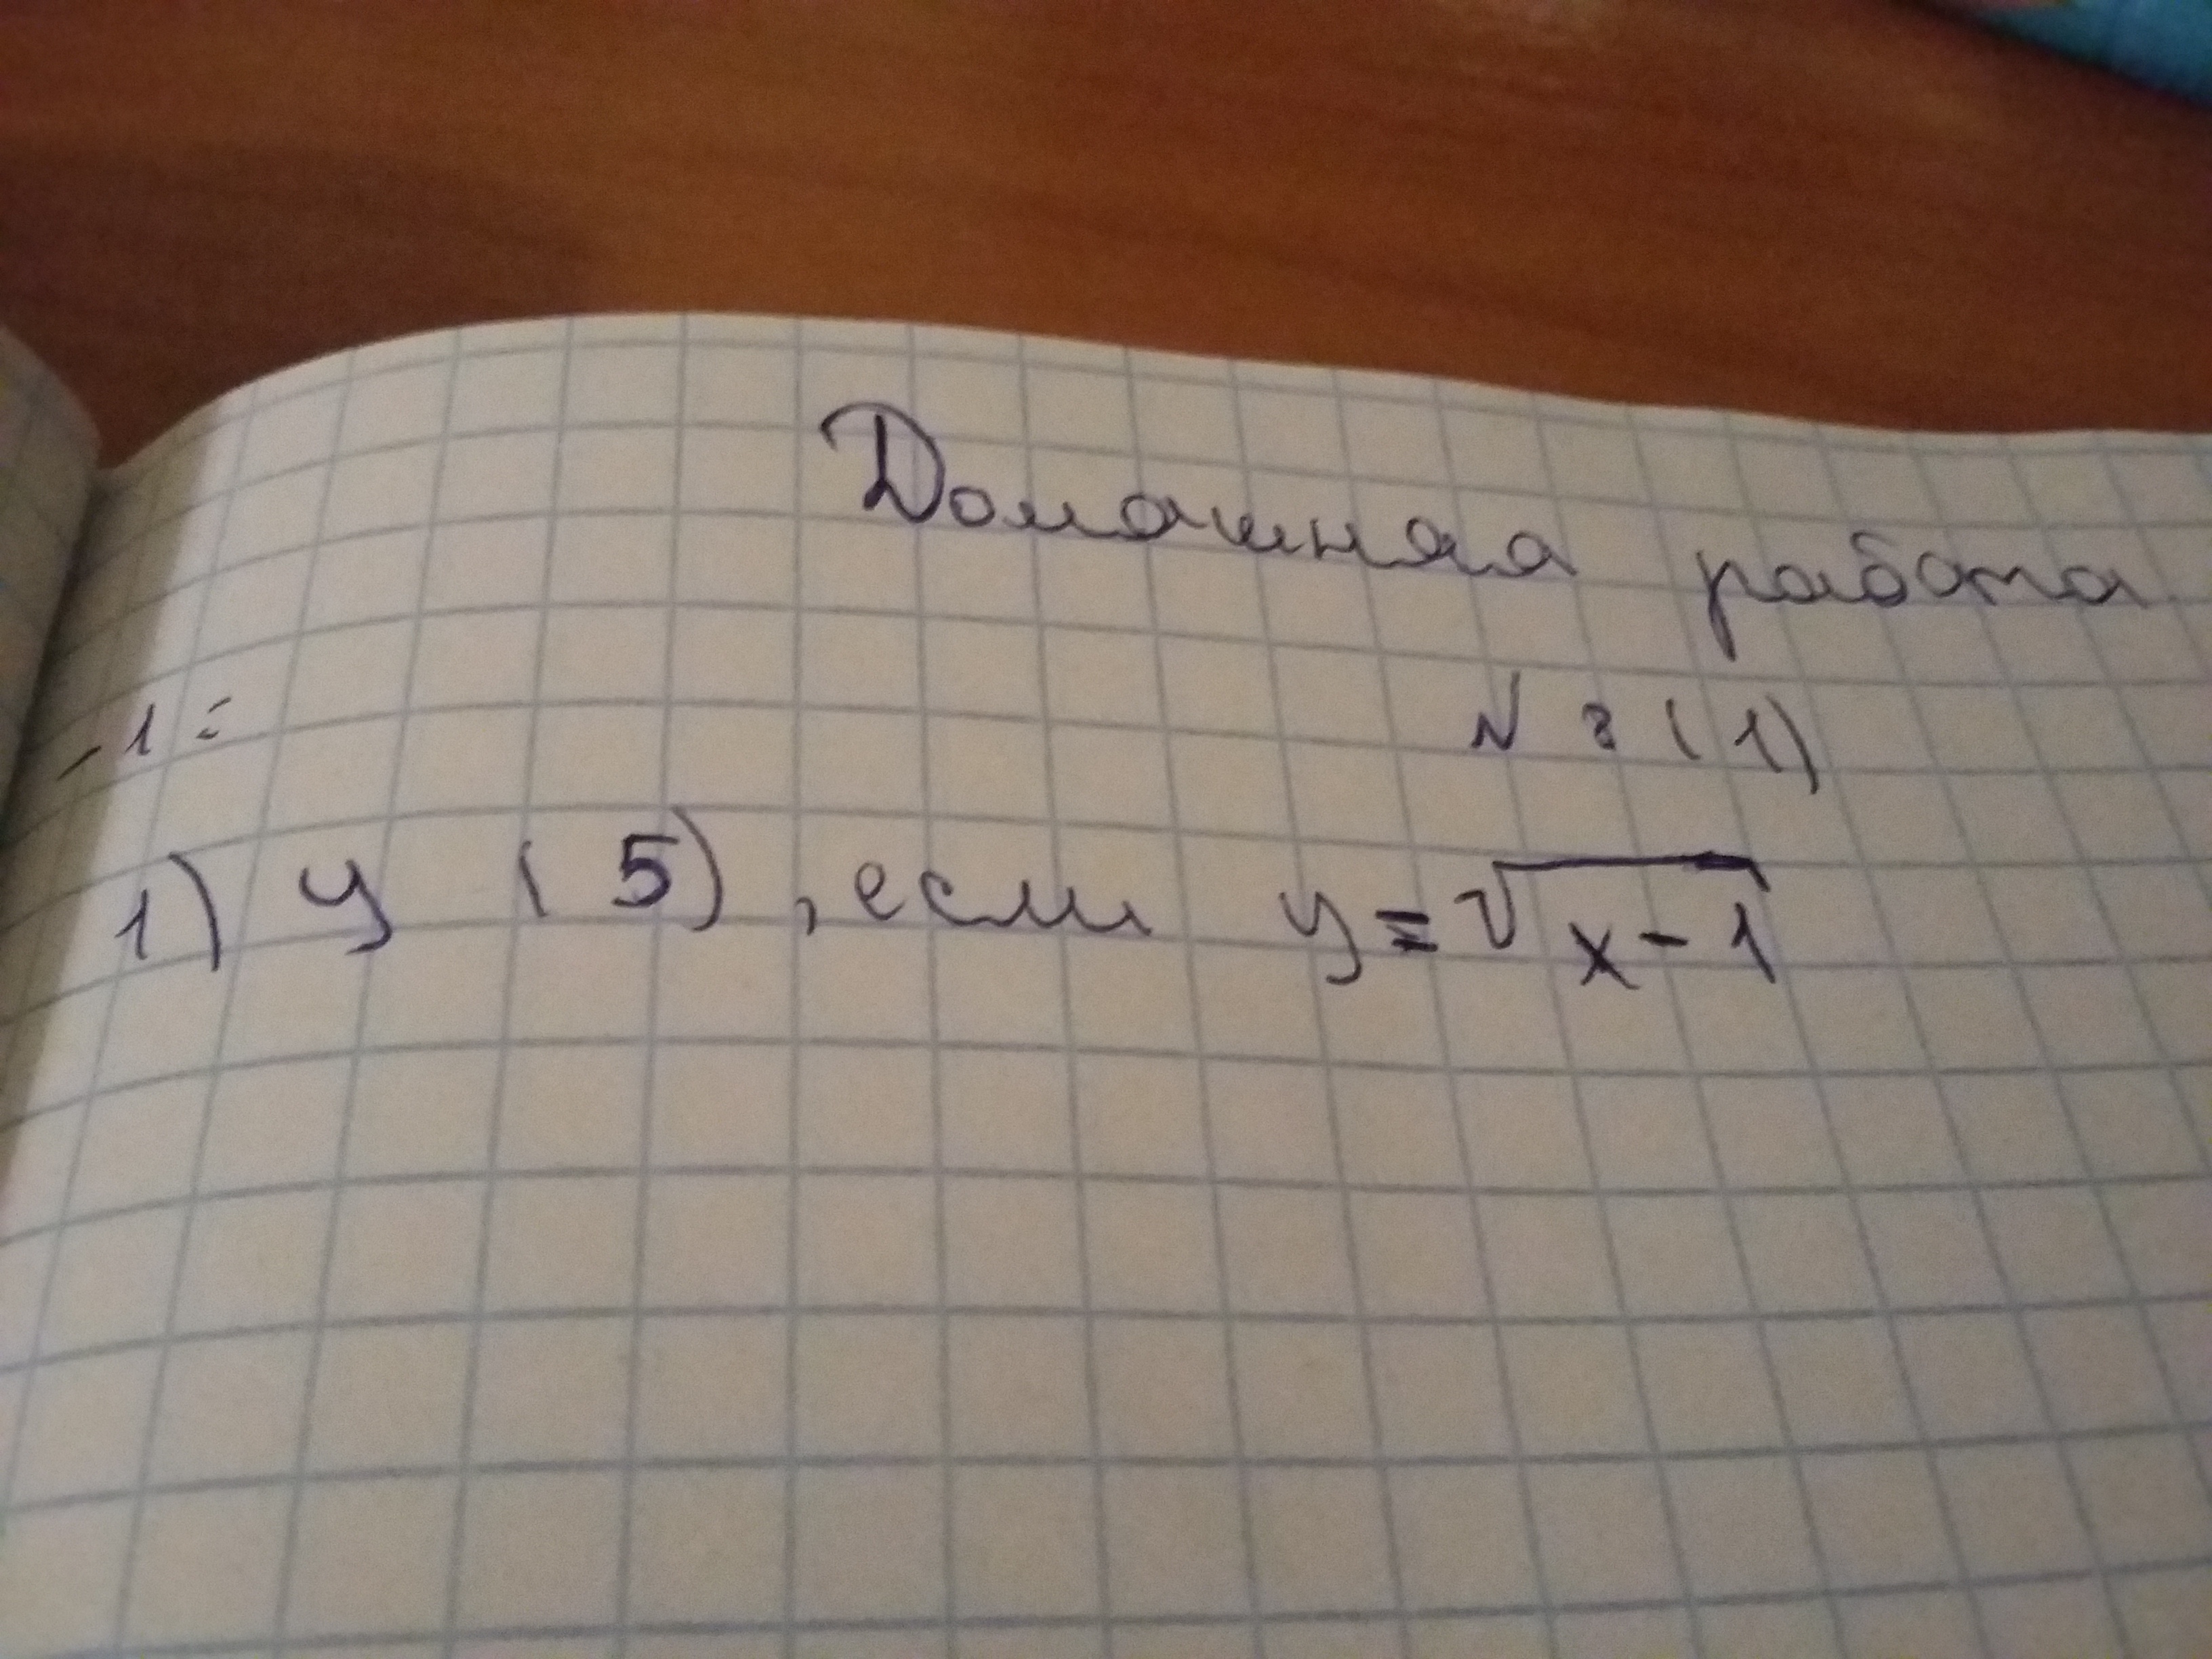 Домашняя работа
№ 8 (1)
-1=
1) y (5), если y=√x-1